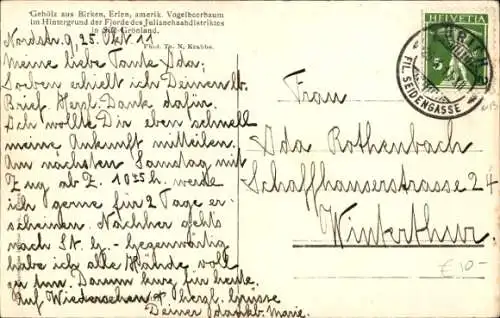 Gehölz aus Birken, Erlen, amerik. Vogelbeerbaum
im Hintergrund der Fjorde des Julianehaabdistriktes
in Süd-Grönland.
Phot. Th. N. Krabbe.
Nordstr. 9, 25. Okt. 11
Meine liebe Tante Ada;
Soeben erhielt ich Deinen lb.
Brief. Herzl. Dank dafür.
Ich wollte Dir eben schnell
meine Ankunft mitteilen.
Am nächsten Samstag mit
Zug ab Z. 1025 h. werde
ich gerne für 2 Tage er-
scheinen. Nachher gehts
nach St. G. - Gegenwärtig
habe ich alle Hände voll
zu tun. Darum kurz für heute.
Auf Wiedersehen & herzl. Grüsse
Deiner dankb. Marie.
HELVETIA
5
ZÜRICH 2
FIL. SEIDENGASSE
Frau
Ada Rothenbach
Schaffhauserstrasse 24
Winterthur
£ 10-